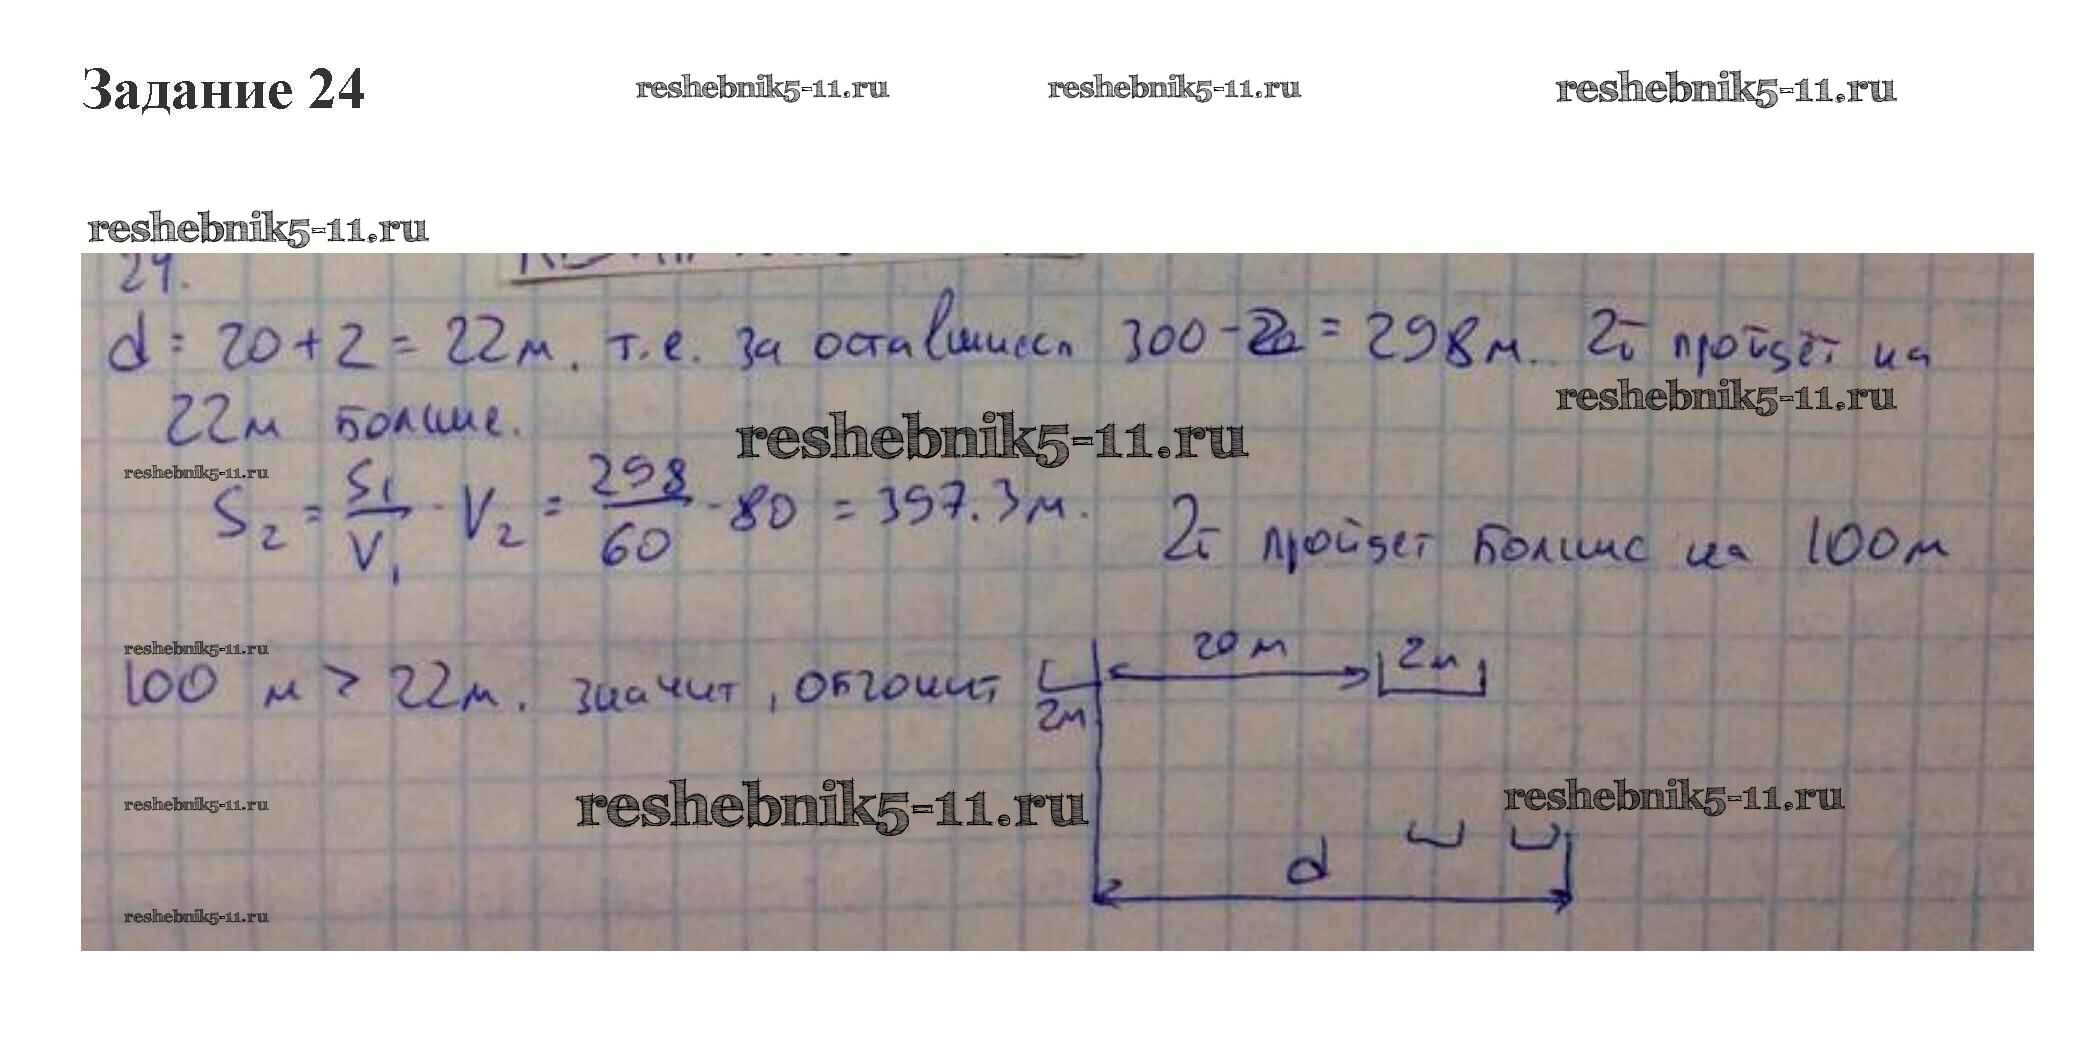 Задание 24
reshebnik5-11.ru reshebnik5-11.ru reshebnik5-11.ru
reshebnik5-11.ru
24.
d = 20 + 2 = 22 м. т.е. за оставшиеся 300 - = 298 м. 2й пройдёт на
reshebnik5-11.ru
22 м больше.
reshebnik5-11.ru
reshebnik5-11.ru
S₂ = S₁/V₁ · V₂ = 298/60 · 80 = 397.3 м. 2й пройдет больше на 100 м
reshebnik5-11.ru
100 м > 22 м. значит, обгонит
2м
20 м
2м
reshebnik5-11.ru
reshebnik5-11.ru
reshebnik5-11.ru
d
reshebnik5-11.ru